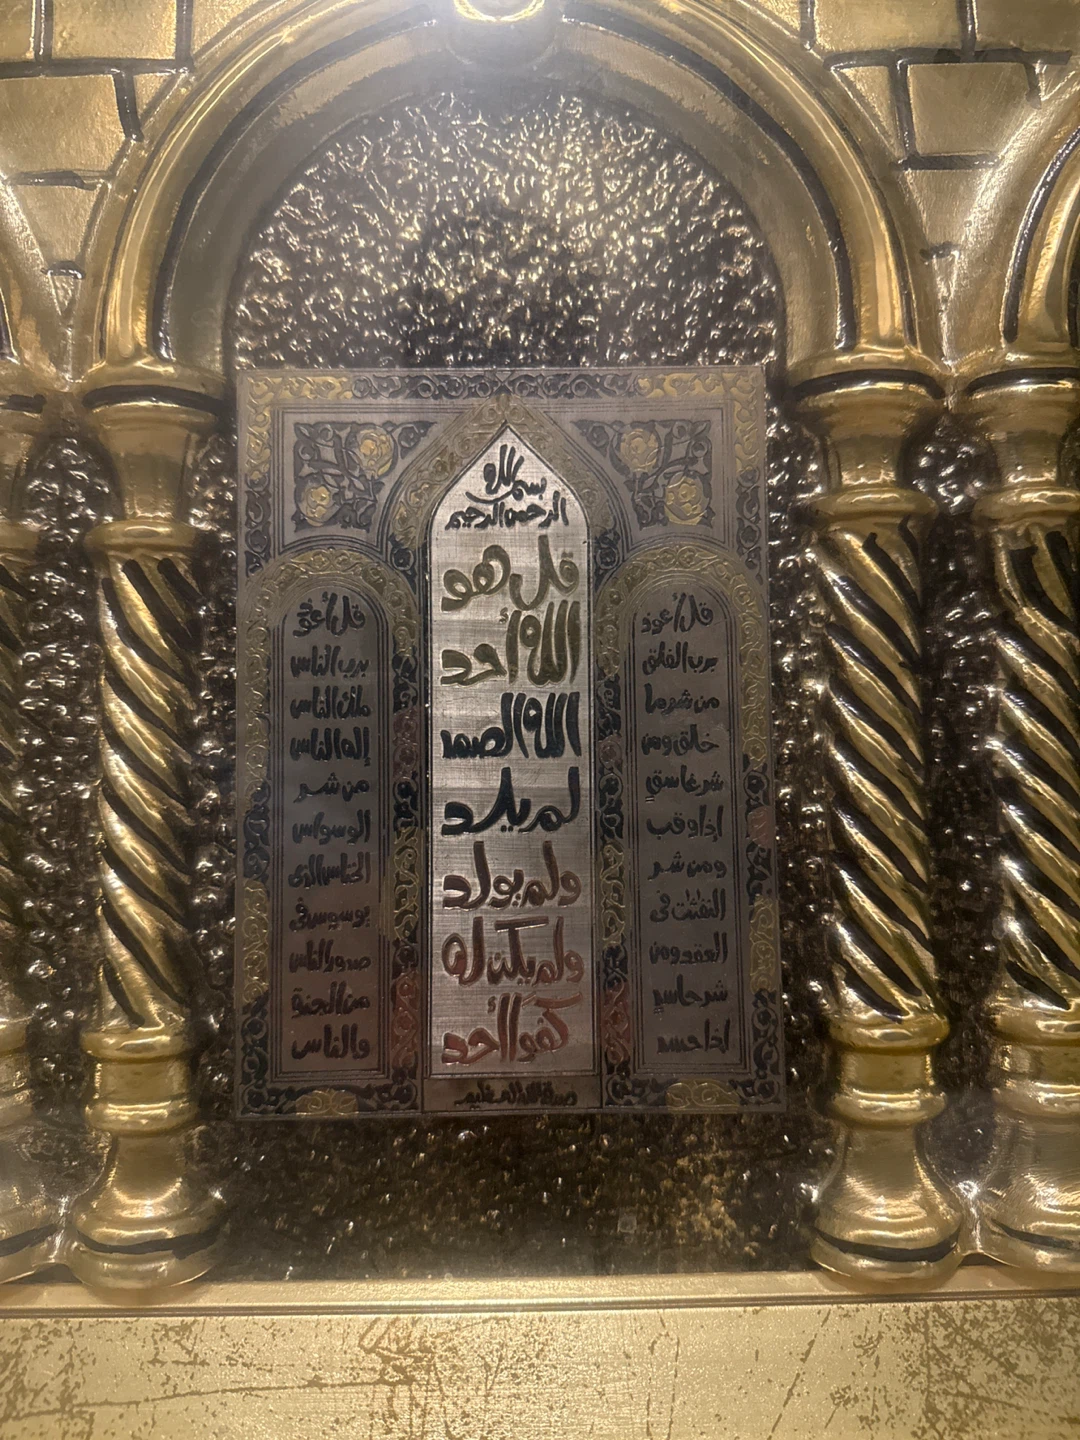 بسم الله
الرحمن الرحيم
قل هو
الله أحد
الله الصمد
لم يلد
ولم يولد
ولم يكن له
كفوا أحد
صدق الله العظيم
قل أعوذ
برب الفلق
من شر ما
خلق ومن
شر غاسق
إذا وقب
ومن شر
النفثت في
العقد ومن
شر حاسد
إذا حسد
قل أعوذ
برب الناس
ملك الناس
إله الناس
من شر
الوسواس
الخناس الذى
يوسوس في
صدور الناس
من الجنة
والناس